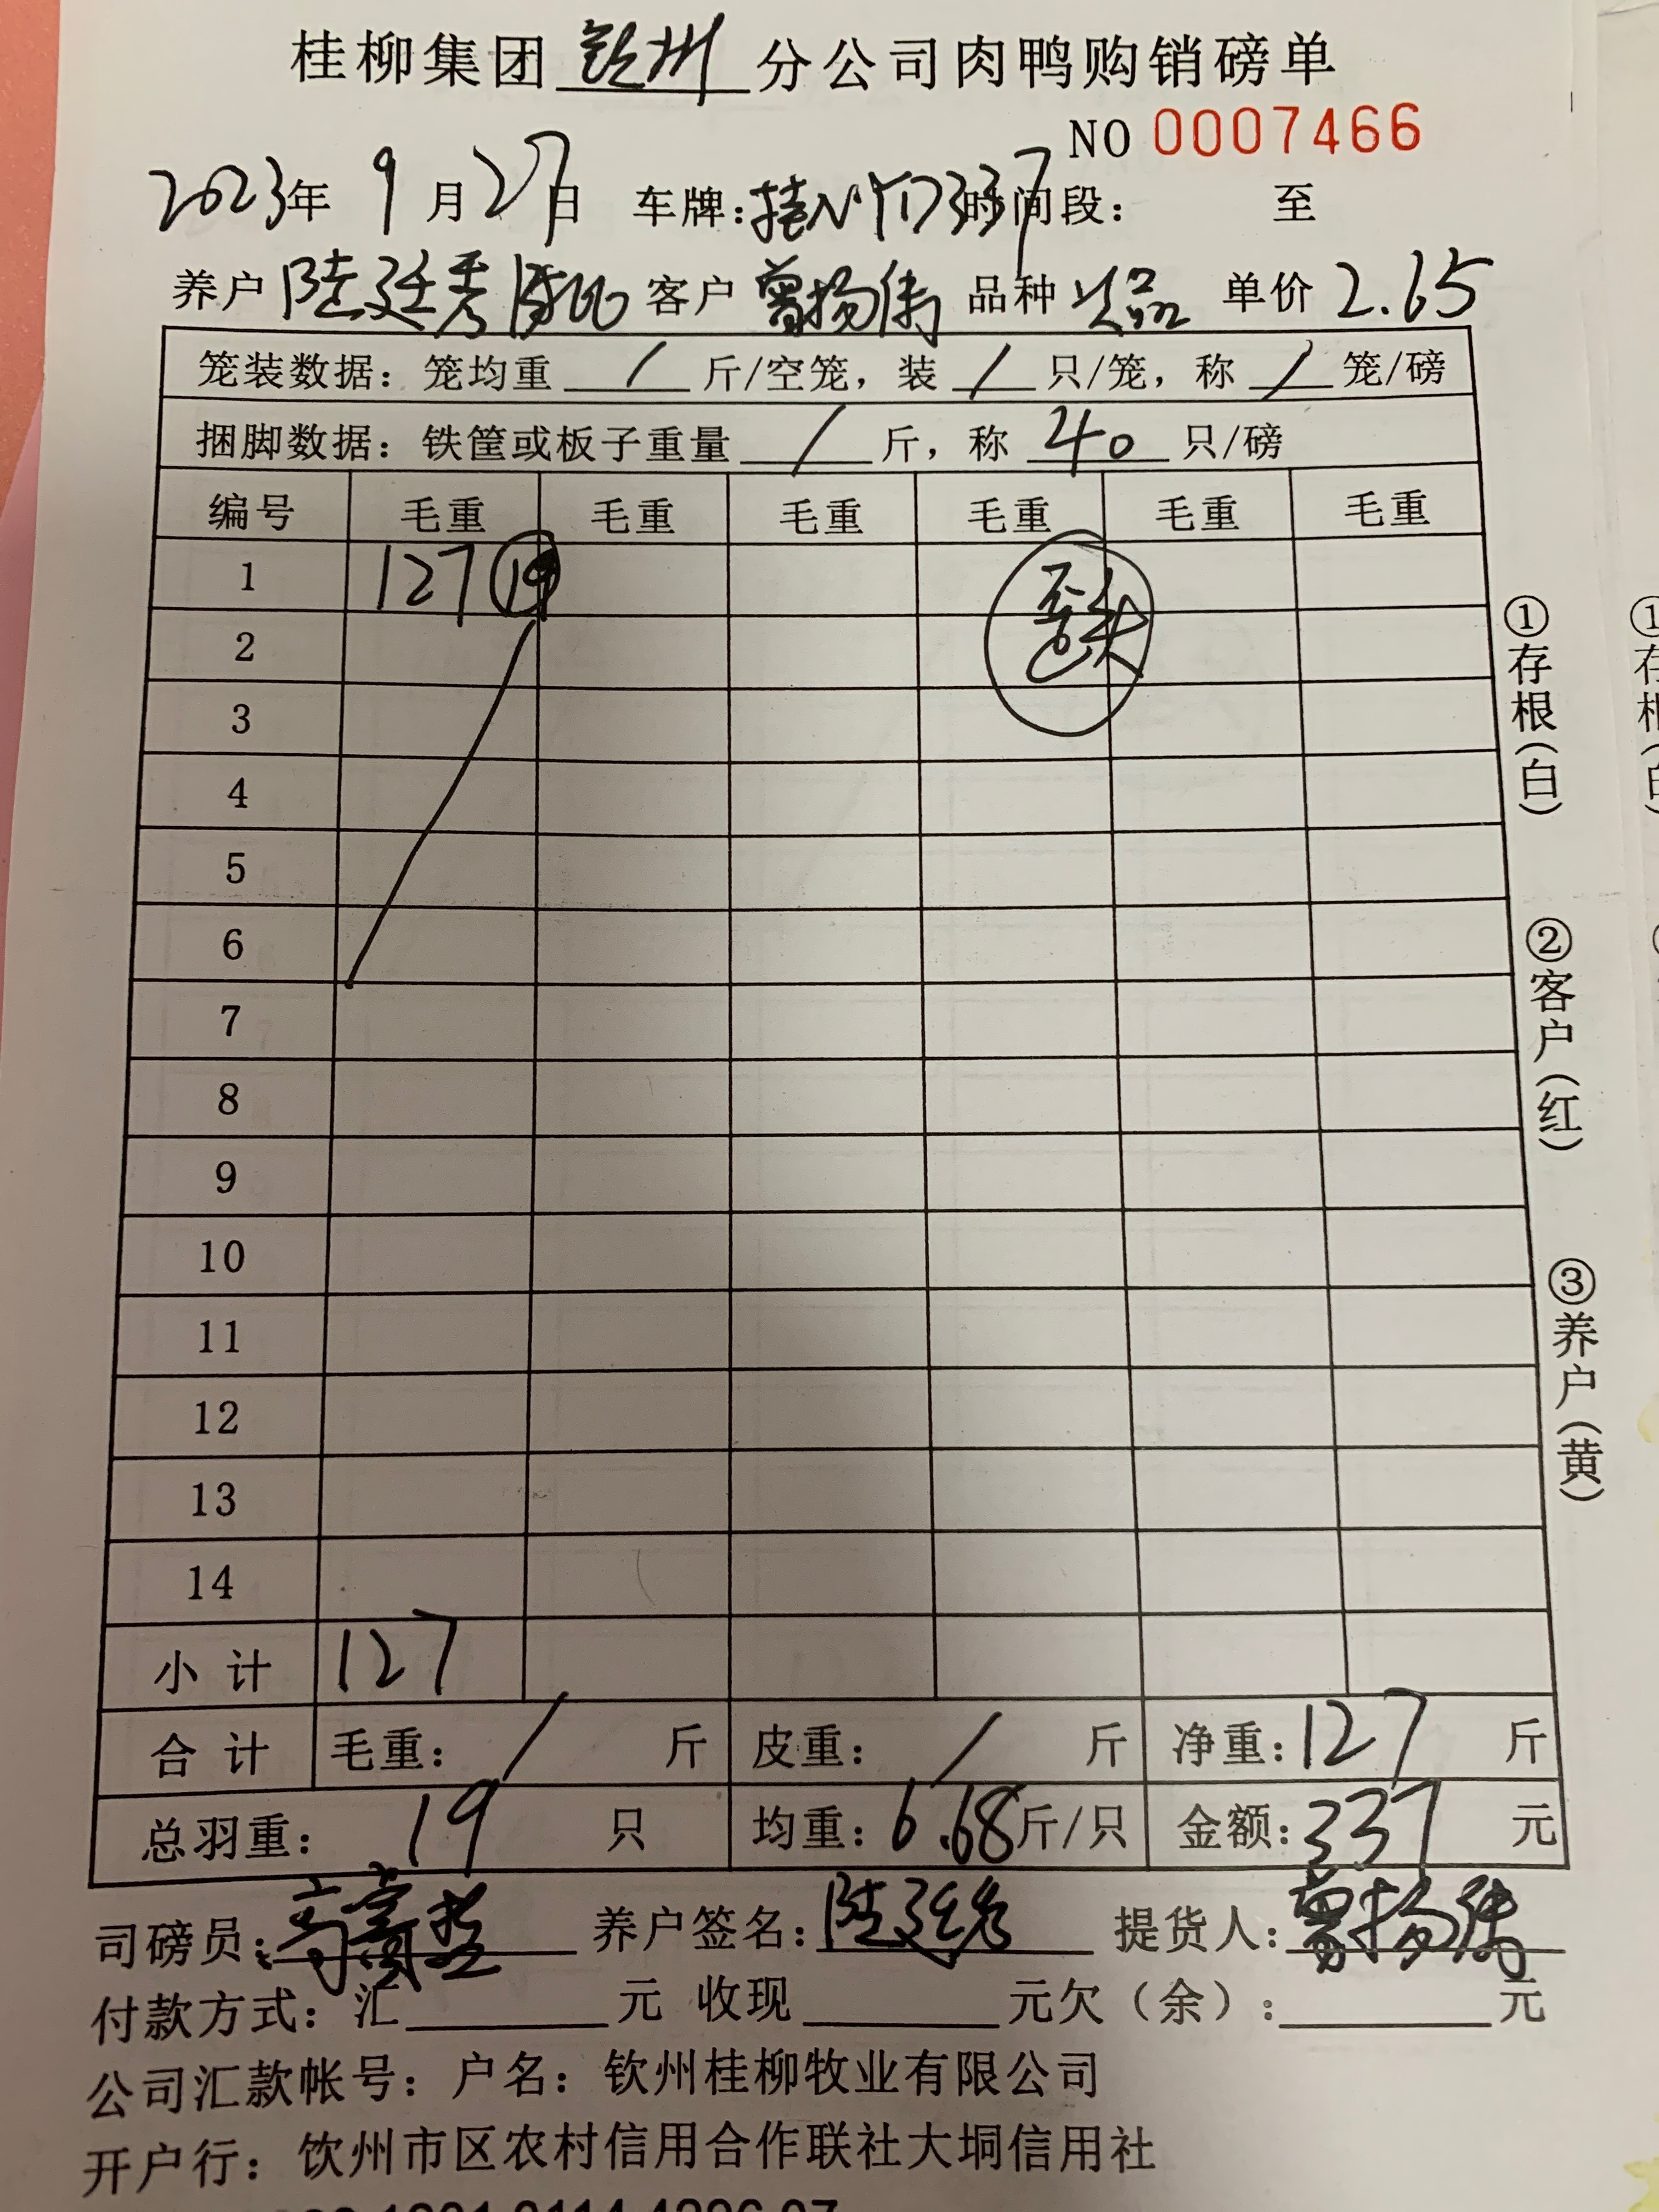 桂柳集团 钦州 分公司肉鸭购销磅单
NO 0007466
2023年 9月27日 车牌: 时间段: 至
养户 陆廷秀 客户 曾扬伟 品种 次品 单价 2.65
笼装数据: 笼均重 / 斤/空笼, 装 / 只/笼, 称 / 笼/磅
捆脚数据: 铁筐或板子重量 / 斤, 称 40 只/磅
编号 毛重 毛重 毛重 毛重 毛重 毛重
1 127 19
2
3
4
5
6
7
8
9
10
11
12
13
14
小计 127
合计 毛重: / 斤 皮重: / 斤 净重: 127 斤
总羽重: 19 只 均重: 6.68 斤/只 金额: 337 元
司磅员: 养户签名: 提货人: 曾扬伟
付款方式: 汇 元 收现 元欠(余): 元
公司汇款帐号: 户名: 钦州桂柳牧业有限公司
开户行: 钦州市区农村信用合作联社大垌信用社
①存根(白)
②客户(红)
③养户(黄)